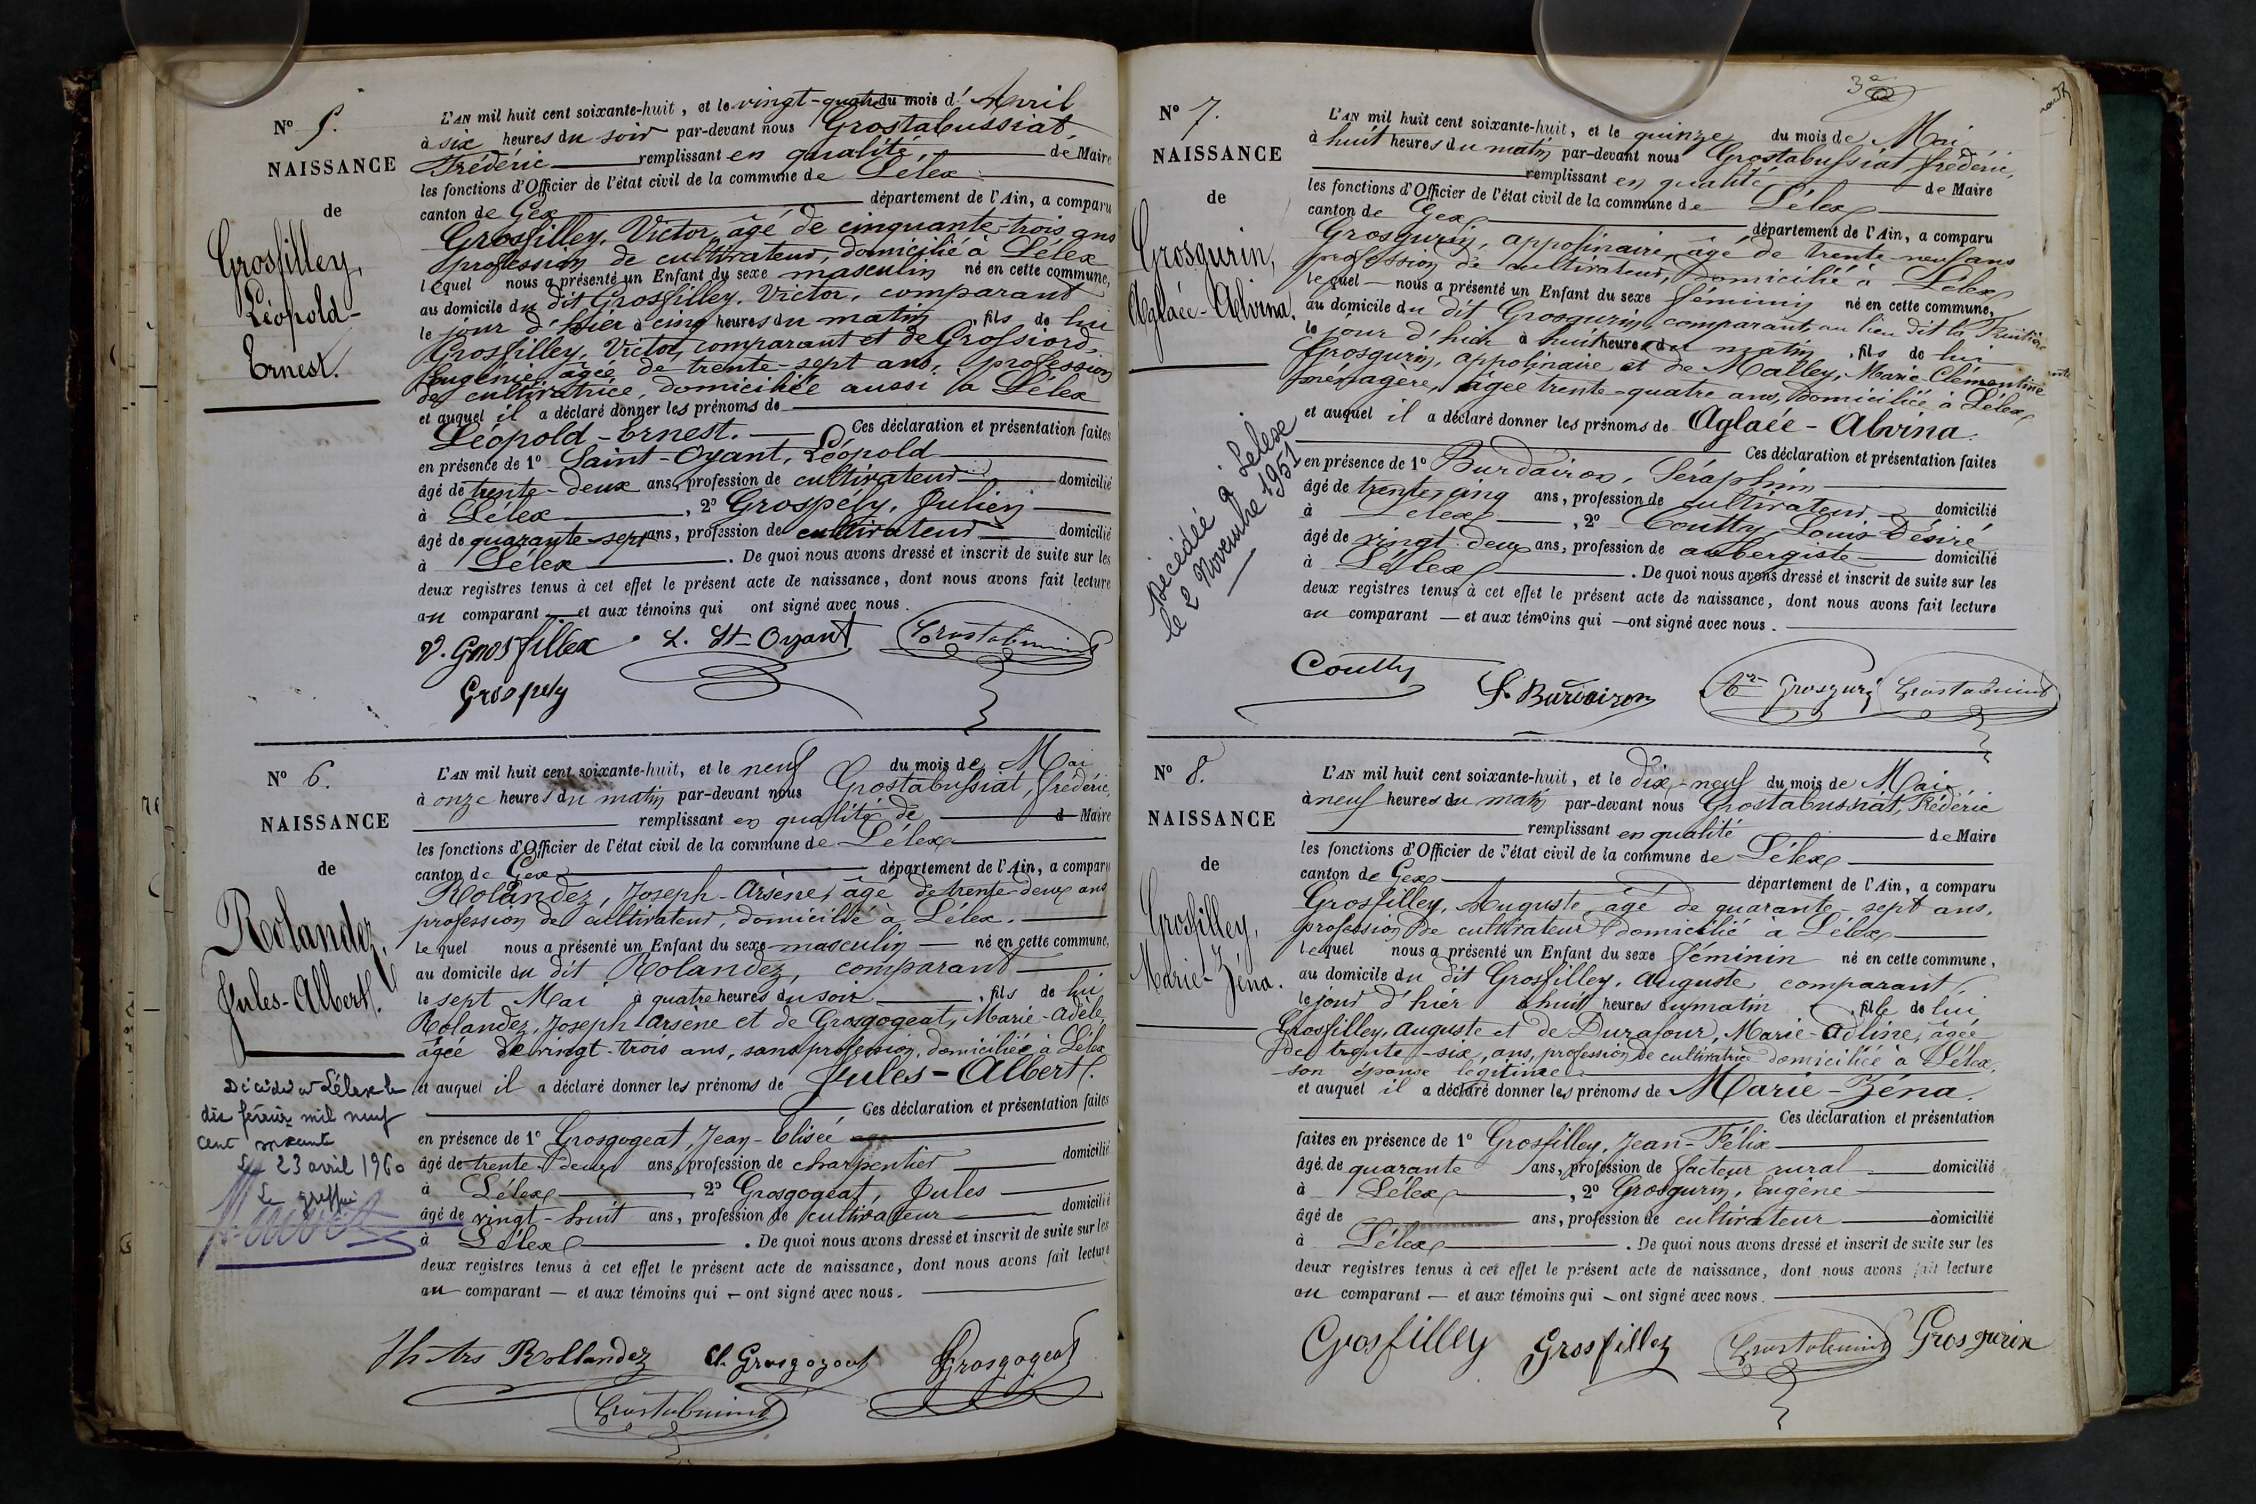 N° 5.
NAISSANCE
de
Grosfilley,
Léopold-
Ernest.
L'AN mil huit cent soixante-huit, et le vingt-quatre du mois d'Avril
à six heures du soir par-devant nous Grostabussiat,
Frédéric remplissant en qualité de Maire
les fonctions d'Officier de l'état civil de la commune de Lélex
canton de Gex département de l'Ain, a comparu
Grosfilley, Victor, âgé de cinquante-trois ans
profession de cultivateur, domicilié à Lélex
lequel nous a présenté un Enfant du sexe masculin né en cette commune,
au domicile du dit Grosfilley, Victor, comparant
le jour d'hier à cinq heures du matin, fils de lui
Grosfilley, Victor, comparant et de Grossiord,
Eugénie, âgée de trente-sept ans, profession
de cultivatrice, domiciliée aussi à Lélex
et auquel il a déclaré donner les prénoms de
Léopold-Ernest. Ces déclaration et présentation faites
en présence de 1° Saint-Oyant, Léopold
âgé de trente-deux ans, profession de cultivateur domicilié
à Lélex, 2° Grospély, Julien
âgé de quarante-sept ans, profession de cultivateur domicilié
à Lélex. De quoi nous avons dressé et inscrit de suite sur les
deux registres tenus à cet effet le présent acte de naissance, dont nous avons fait lecture
au comparant et aux témoins qui ont signé avec nous.
V. Grosfillex L. St-Oyant
Grospely
N° 6.
NAISSANCE
de
Rolandez,
Jules-Albert.
Décédé à Lélex le
dix février mil neuf
cent soixante
Le 23 avril 1960
Le greffier
L'AN mil huit cent soixante-huit, et le neuf du mois de Mai
à onze heures du matin par-devant nous Grostabussiat, frédéric,
remplissant en qualité de d Maire
les fonctions d'Officier de l'état civil de la commune de Lélex
canton de Gex département de l'Ain, a comparu
Rolandez, Joseph-Arsène, âgé de trente-deux ans
profession de cultivateur, domicilié à Lélex.
lequel nous a présenté un Enfant du sexe masculin né en cette commune,
au domicile du dit Rolandez, comparant
le sept Mai à quatre heures du soir, fils de lui
Rolandez, Joseph Arsène et de Grosgogeat, Marie-Adèle,
âgée de vingt-trois ans, sans profession, domiciliée à Lélex
et auquel il a déclaré donner les prénoms de Jules-Albert.
Ces déclaration et présentation faites
en présence de 1° Grosgogeat, Jean-Elisée
âgé de trente-deux ans, profession de charpentier domicilié
à Lélex, 2° Grosgogeat, Jules
âgé de vingt-huit ans, profession de cultivateur domicilié
à Lélex. De quoi nous avons dressé et inscrit de suite sur les
deux registres tenus à cet effet le présent acte de naissance, dont nous avons fait lecture
au comparant et aux témoins qui ont signé avec nous.
Rollandez Grosgogeat Grosgogeat
3e
N° 7.
NAISSANCE
de
Grosgurin,
Aglaée-Alvina.
Décédée à Lélex
le 2 Novembre 1951
L'AN mil huit cent soixante-huit, et le quinze du mois de Mai
à huit heures du matin par-devant nous Grostabussiat, frédéric,
remplissant en qualité de Maire
les fonctions d'Officier de l'état civil de la commune de Lélex
canton de Gex département de l'Ain, a comparu
Grosgurin, appolinaire, âgé de trente-neuf ans
profession de cultivateur, domicilié à Lélex
lequel nous a présenté un Enfant du sexe féminin né en cette commune,
au domicile du dit Grosgurin, comparant au lieu dit la Fruitière
le jour d'hier à huit heures du matin, fils de lui
Grosgurin, appolinaire et de Malley, Marie-Clémentine
ménagère, âgée trente-quatre ans, domiciliée à Lélex
et auquel il a déclaré donner les prénoms de Aglaée-Alvina.
Ces déclaration et présentation faites
en présence de 1° Burdairon, Séraphin
âgé de trente-cinq ans, profession de cultivateur domicilié
à Lélex, 2° Coutty, Louis Désiré
âgé de vingt-deux ans, profession de aubergiste domicilié
à Lélex. De quoi nous avons dressé et inscrit de suite sur les
deux registres tenus à cet effet le présent acte de naissance, dont nous avons fait lecture
au comparant et aux témoins qui ont signé avec nous.
Coutty S. Burdairon Grosgurin
N° 8.
NAISSANCE
de
Grosfilley,
Marie-Zéna.
L'AN mil huit cent soixante-huit, et le dix-neuf du mois de Mai
à neuf heures du matin par-devant nous Grostabussiat, Frédéric
remplissant en qualité de Maire
les fonctions d'Officier de l'état civil de la commune de Lélex
canton de Gex département de l'Ain, a comparu
Grosfilley, Auguste, âgé de quarante-sept ans,
profession de cultivateur domicilié à Lélex
lequel nous a présenté un Enfant du sexe féminin né en cette commune,
au domicile du dit Grosfilley, Auguste comparant,
le jour d'hier à huit heures du matin, fille de lui
Grosfilley, Auguste et de Durafour, Marie-Adline, âgée
de trente-six, ans, profession de cultivatrice domiciliée à Lélex,
son épouse légitime
et auquel il a déclaré donner les prénoms de Marie-Zéna.
Ces déclaration et présentation
faites en présence de 1° Grosfilley, Jean-Félix
âgé de quarante ans, profession de facteur rural domicilié
à Lélex, 2° Grosgurin, Eugène
âgé de ans, profession de cultivateur domicilié
à Lélex. De quoi nous avons dressé et inscrit de suite sur les
deux registres tenus à cet effet le présent acte de naissance, dont nous avons fait lecture
au comparant et aux témoins qui ont signé avec nous.
Grosfilley Grosfilley Grosgurin